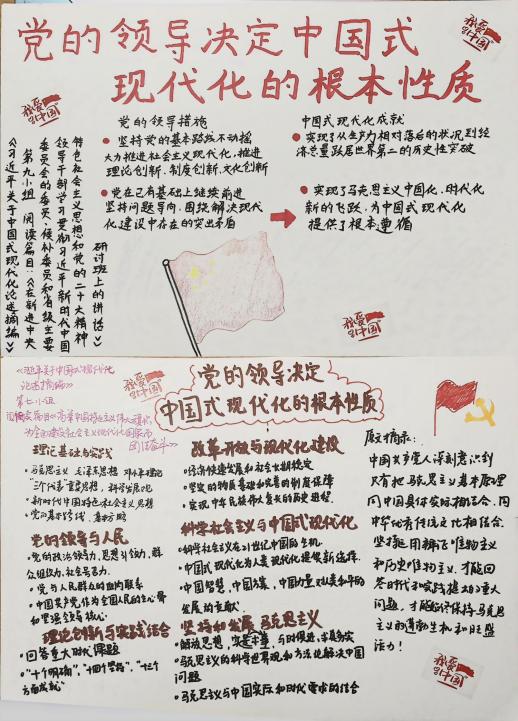 党的领导决定中国式
现代化的根本性质
我爱
中国
党的领导措施
坚持党的基本路线不动摇
大力推进社会主义现代化,推进
理论创新、制度创新、文化创新
党在已有基础上继续前进
坚持问题导向,围绕解决现代
化建设中存在的突出矛盾
中国式现代化成就
实现了从生产力相对落后的状况到经
济总量跃居世界第二的历史性突破
实现了马克思主义中国化、时代化
新的飞跃,为中国式现代化
提供了根本遵循
我爱
中国
研讨班上的讲话》
特色社会主义思想和党的二十大精神
领导干部学习贯彻习近平新时代中国
委员会的委员、候补委员和省级主要
第九小组 阅读篇目:《在新进中央
《习近平关于中国式现代化论述摘编》
我爱
中国
党的领导决定
中国式现代化的根本性质
我爱
中国
论述摘编》
第七小组
理论基础与实践
马克思主义 毛泽东思想 邓小平理论
"三个代表"重要思想,科学发展观
新时代中国特色社会主义思想
党的领导与人民
党的政治领导力,思想引领力,群
众组织力,社会号召力.
党与人民群众的血肉联系
中国共产党作为全国人民的主心骨
和坚强领导核心
理论创新与实践结合
回答重大时代课题
"十个明确","十四个坚持","十三个
方面成就"
改革开放与现代化建设
经济快速发展和社会长期稳定
坚实的物质基础和完善的制度保障
实现中华民族伟大复兴的历史进程
科学社会主义与中国式现代化
科学社会主义在21世纪中国的生机
中国式现代化为人类现代化提供新选择
中国智慧,中国方案,中国力量对人类和平的
发展的贡献
坚持和发展马克思主义
解放思想,实事求是,与时俱进,求真务实
马克思主义的科学世界观和方法论解决中国
问题
马克思主义与中国实际和时代要求的结合
原文摘录:
中国共产党人深刻意识到
只有把马克思主义基本原理
同中国具体实际相结合、同
中华优秀传统文化相结合.
坚持运用辩证唯物主义
和历史唯物主义.才能回
答时代和实践提出的重大
问题,才能始终保持马克思
主义的蓬勃生机和旺盛
活力!
我爱
中国